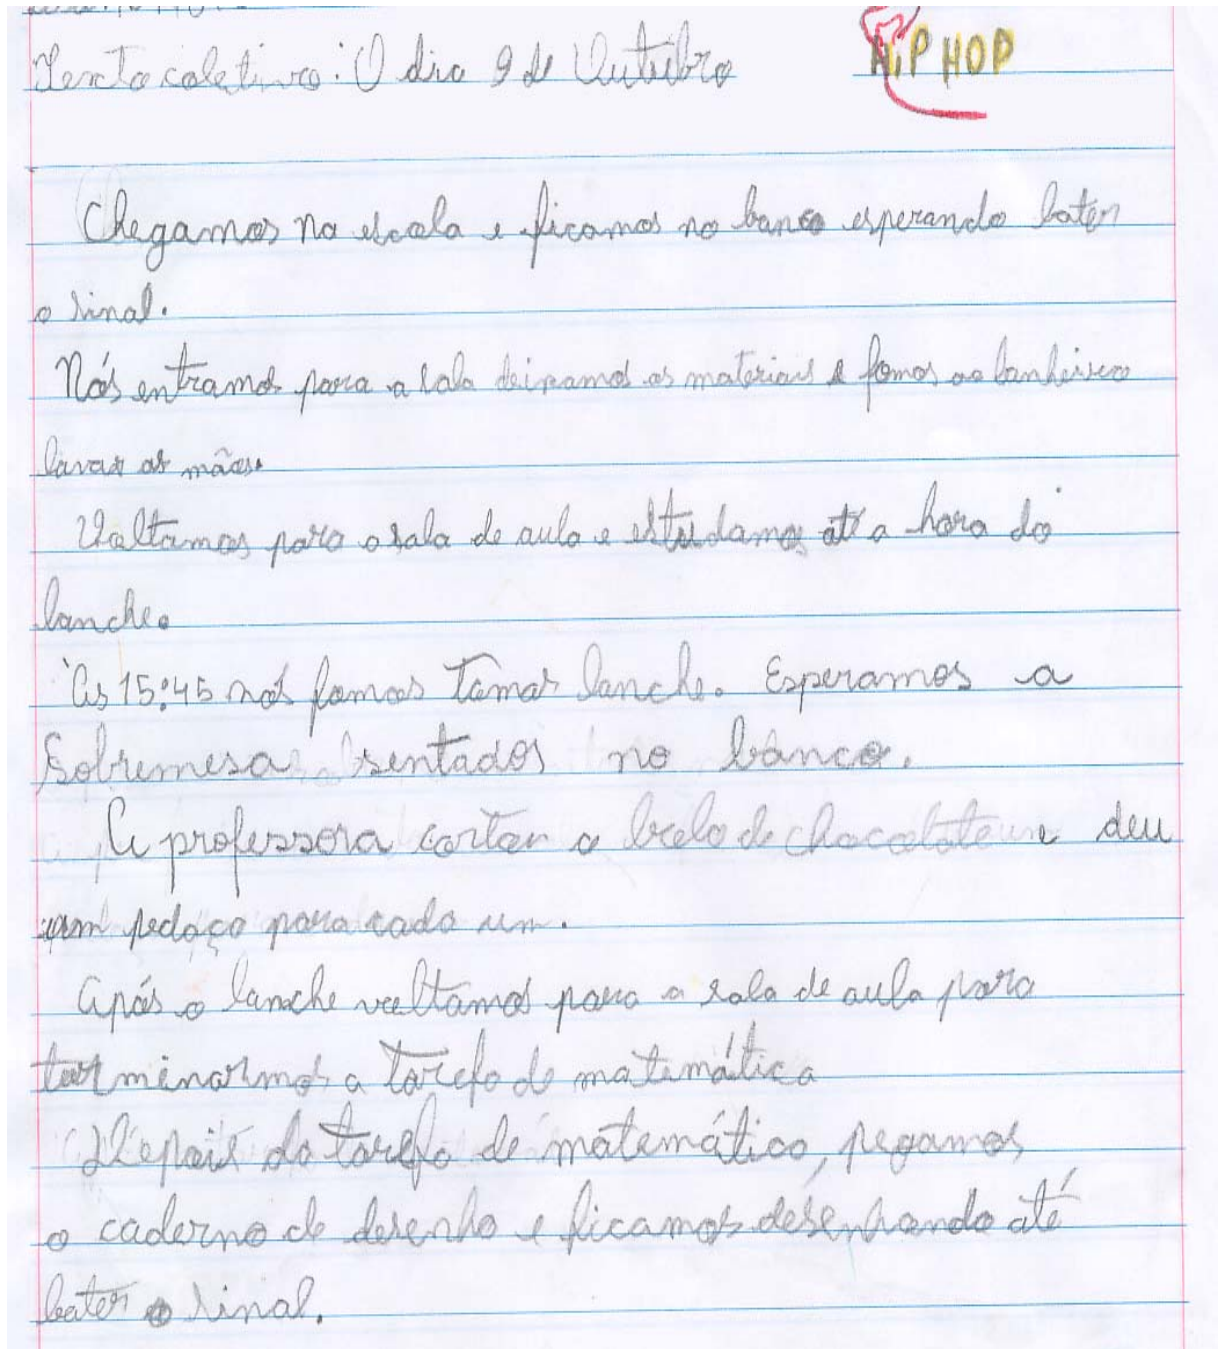 Texto coletivo: O dia 9 de Outubro
HiP HOP
Chegamos na escola e ficamos no banco esperando bater
o sinal.
Nós entramos para a sala deixamos os materiais e fomos ao banheiro
lavar as mãos.
Voltamos para a sala de aula e estudamos até a hora do
lanche.
Às 15:45 nós fomos tomar lanche. Esperamos a
Sobremesa sentados no banco.
A professora cortou o bolo de chocolate e deu
um pedaço para cada um.
Após o lanche voltamos para a sala de aula para
terminarmos a tarefa de matemática
Depois da tarefa de matemática, pegamos
o caderno de desenho e ficamos desenhando até
bater o sinal.